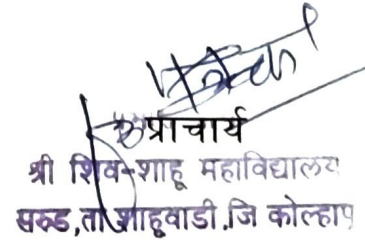 प्राचार्य
श्री शिव-शाहू महाविद्यालय
सरुड,ता शाहूवाडी.जि कोल्हाप